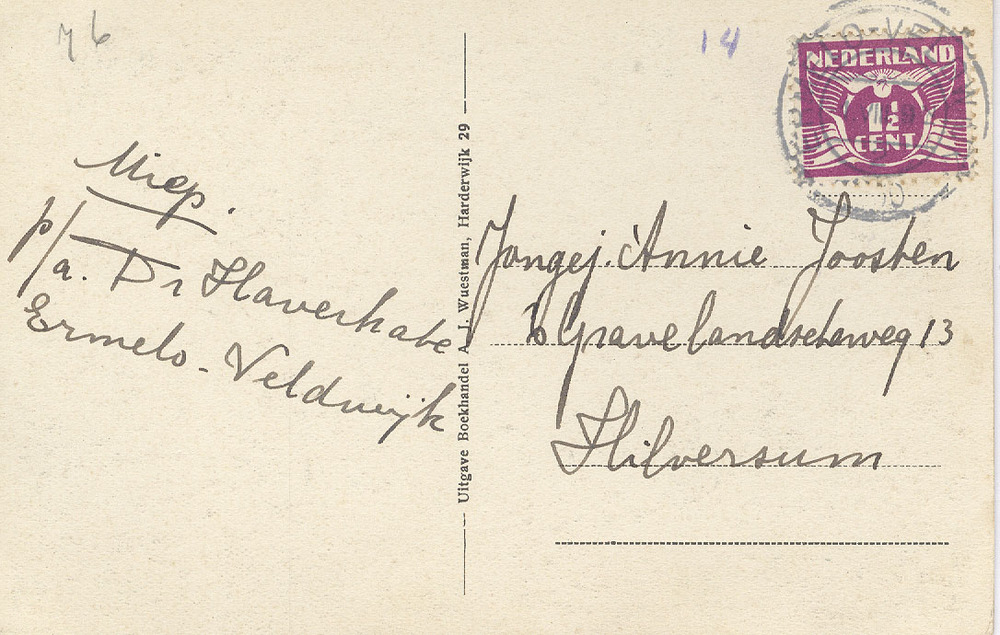 76
14
NEDERLAND
1½
CENT
Miep.
p/a. Dr Haverkate
Ermelo - Veldwijk
Uitgave Boekhandel A. J. Wuestman, Harderwijk 29
Jongej. Annie Joosten
Gravelandscheweg 13
Hilversum